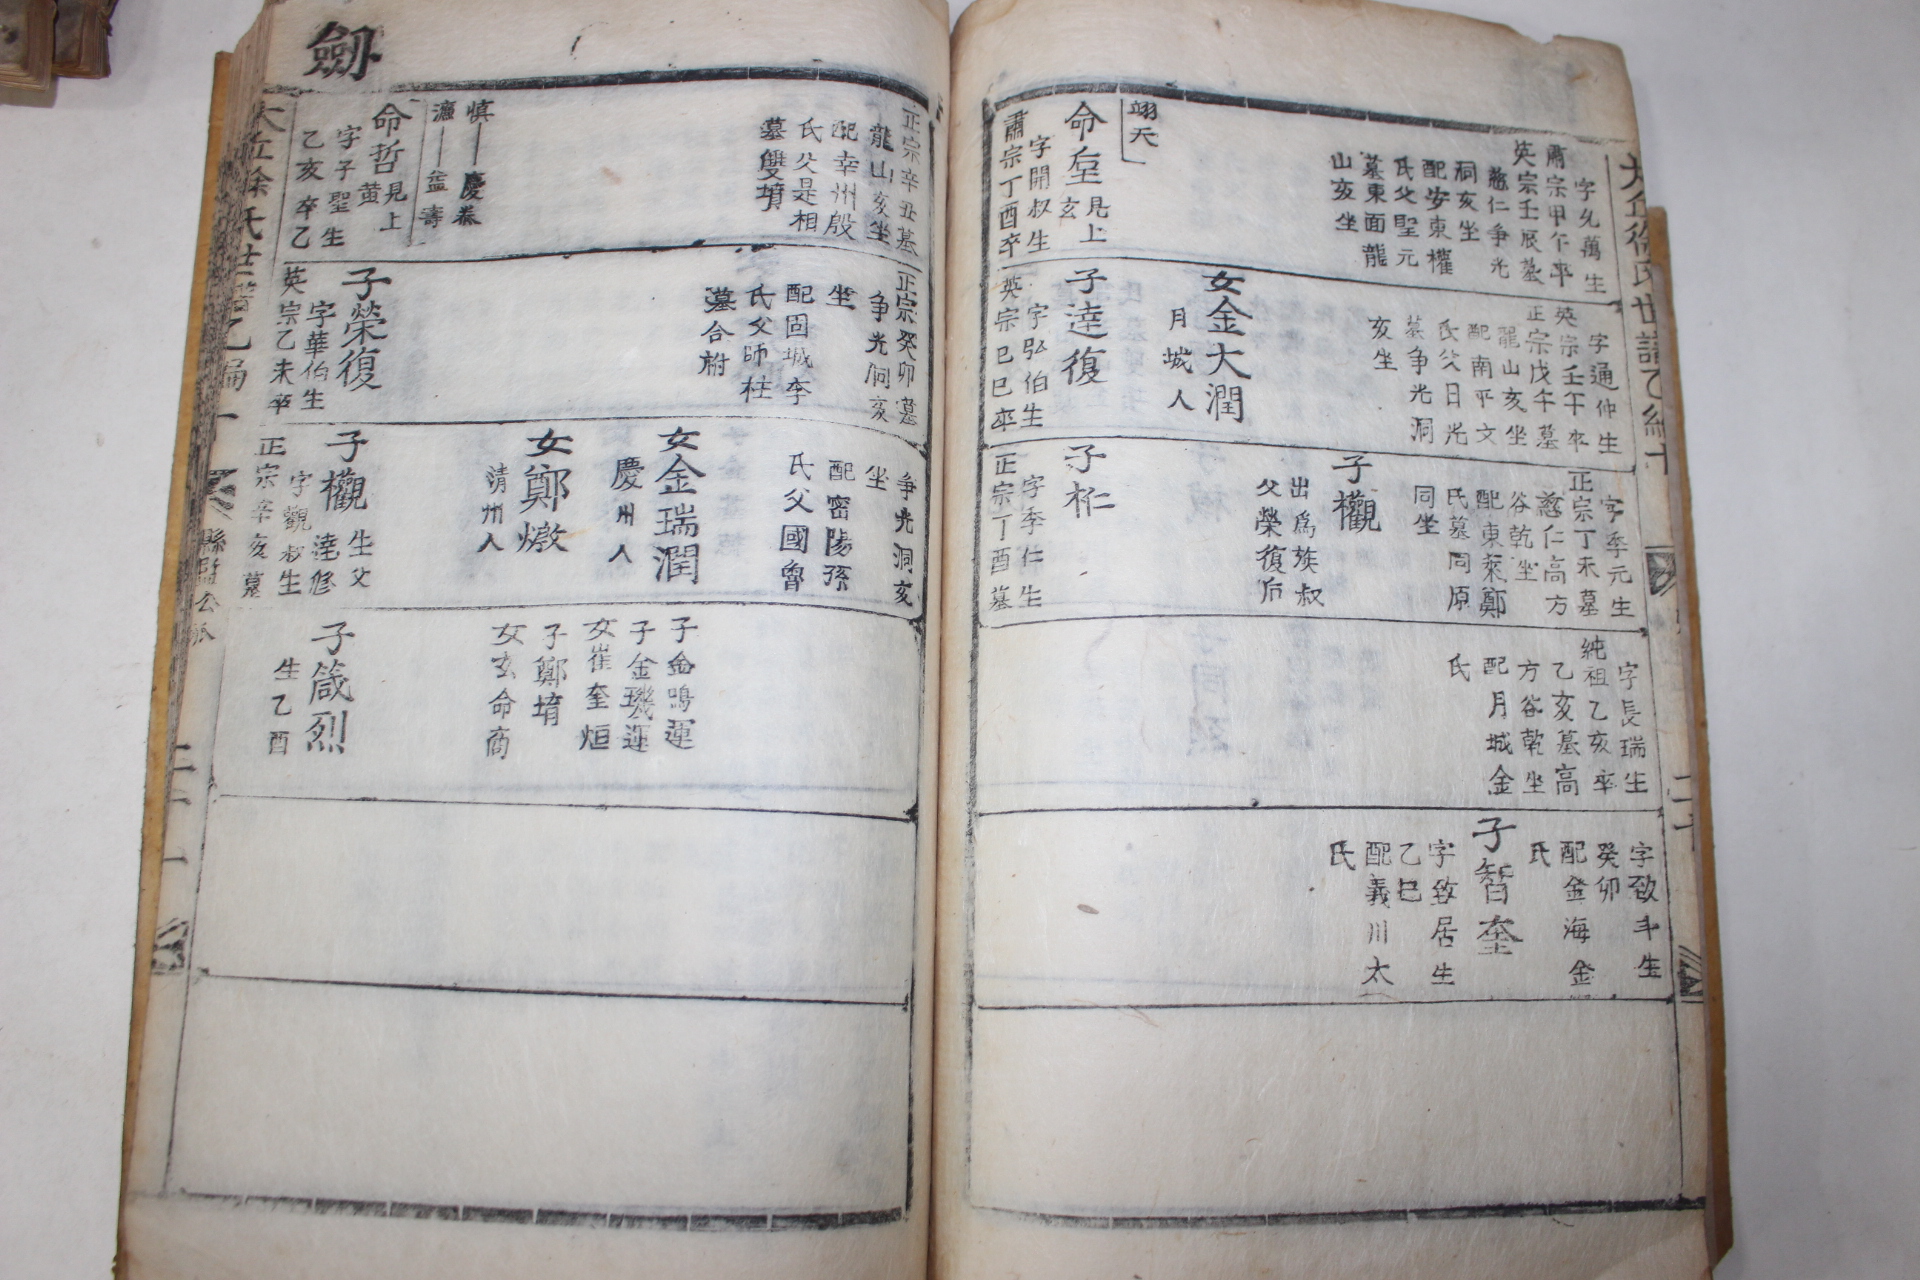 字允萬生
肅宗甲午卒
英宗壬辰墓
慈仁爭光
洞亥坐
配安東權
氏父聖元
墓東面龍
山亥坐
翊天
命㞷見上
玄
字開叔生
肅宗丁酉卒
字通仲生
英宗壬午卒
正宗戊午墓
龍山亥坐
配南平文
氏父日光
墓爭光洞
亥坐
女金大潤
月城人
子達復
字弘伯生
英宗己巳卒
字季元生
正宗丁未墓
慈仁高方
谷乾坐
配東萊鄭
氏墓同原
同坐
子欟
出爲族叔
父榮復后
子杧
字季仁生
正宗丁酉墓
字長瑞生
純祖乙亥卒
乙亥墓高
方谷乾坐
配月城金
氏
字致斗生
癸卯
配金海金
氏
子智奎
字致居生
乙巳
配義川太
氏
正宗辛丑墓
龍山亥坐
配幸州殷
氏父是相
墓雙墳
愼
慶泰
瀍
益壽
命哲見上
黃
字子聖生
乙亥卒乙
正宗癸卯墓
爭光洞亥
坐
配固城李
氏父師柱
墓合祔
子榮復
字華伯生
英宗乙未卒
爭光洞亥
坐
配密陽孫
氏父國魯
女金瑞潤
慶州人
女鄭燉
淸州人
子欟生父
達修
字觀叔生
正宗辛亥墓
子金鳴運
子金璣運
女崔奎烜
子鄭堉
女玄命商
子箴烈
生乙酉
劒
縣監公派